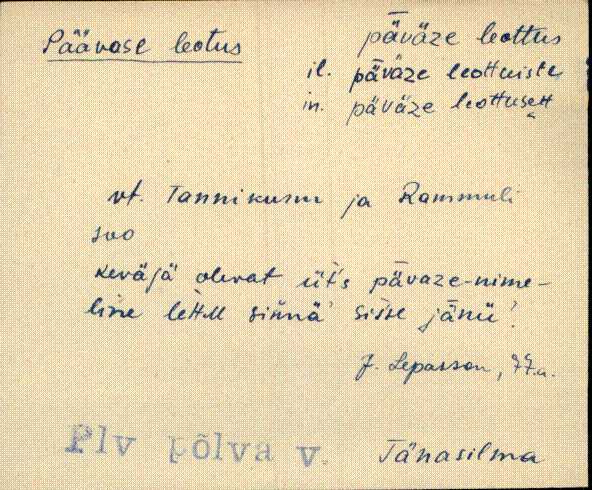 Päävase leotus
pǟväze leottus
il. pǟväze leottuiste
in. pǟväze leottusett
vt. Tannikusuu ja Rammuli
soo
keväjä olevat üt's pävaze-nime-
line lehm sinnä sisse jänü.
J. Lepasson, 77.a.
Plv põlva v.
Tänasilma